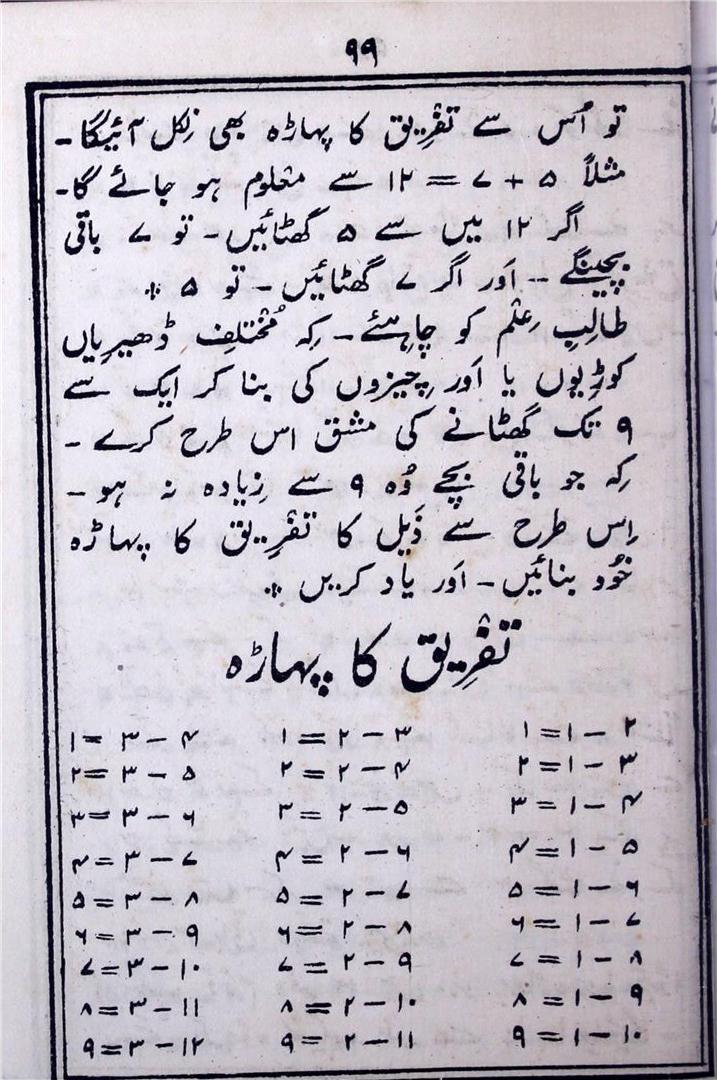 ۹۹
تو اُس سے تفْرِیق کا پہاڑہ بھی نِکل آئیگا۔
مثلاً ۵ + ۷ = ۱۲ سے معْلوم ہو جائے گا۔
اگر ۱۲ میں سے ۵ گھٹائیں۔ تو ۷ باقی
بچینگے۔ اَور اگر ۷ گھٹائیں۔ تو ۵ ⁂
طالبِ عِلْم کو چاہِئے۔ کِہ مُخْتلِف ڈھیریاں
کوڑِیوں یا اَور چِیزوں کی بنا کر ایک سے
۹ تک گھٹانے کی مشق اس طرح کرے۔
کِہ جو باقی بچے وُہ ۹ سے زِیادہ نہ ہو۔
اِس طرح سے ذَیل کا تفْرِیق کا پہاڑہ
خُود بنائیں۔ اَور یاد کریں ⁂
تفْرِیق کا پہاڑہ
۲ – ۱ = ۱ ۳ – ۲ = ۱ ۴ – ۳ = ۱
۳ – ۱ = ۲ ۴ – ۲ = ۲ ۵ – ۳ = ۲
۴ – ۱ = ۳ ۵ – ۲ = ۳ ۶ – ۳ = ۳
۵ – ۱ = ۴ ۶ – ۲ = ۴ ۷ – ۳ = ۴
۶ – ۱ = ۵ ۷ – ۲ = ۵ ۸ – ۳ = ۵
۷ – ۱ = ۶ ۸ – ۲ = ۶ ۹ – ۳ = ۶
۸ – ۱ = ۷ ۹ – ۲ = ۷ ۱۰ – ۳ = ۷
۹ – ۱ = ۸ ۱۰ – ۲ = ۸ ۱۱ – ۳ = ۸
۱۰ – ۱ = ۹ ۱۱ – ۲ = ۹ ۱۲ – ۳ = ۹